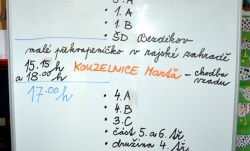 3. A
1. A
1. B
ŠD Bezděkov
malé překvapeníčko v rajské zahradě
15.15 h KOUZELNICE Martá - chodba
a 18.00 h vzadu
17.00 h
4. A
4. B
3. C
část 5. a 6. tř.
družina 4. tř.